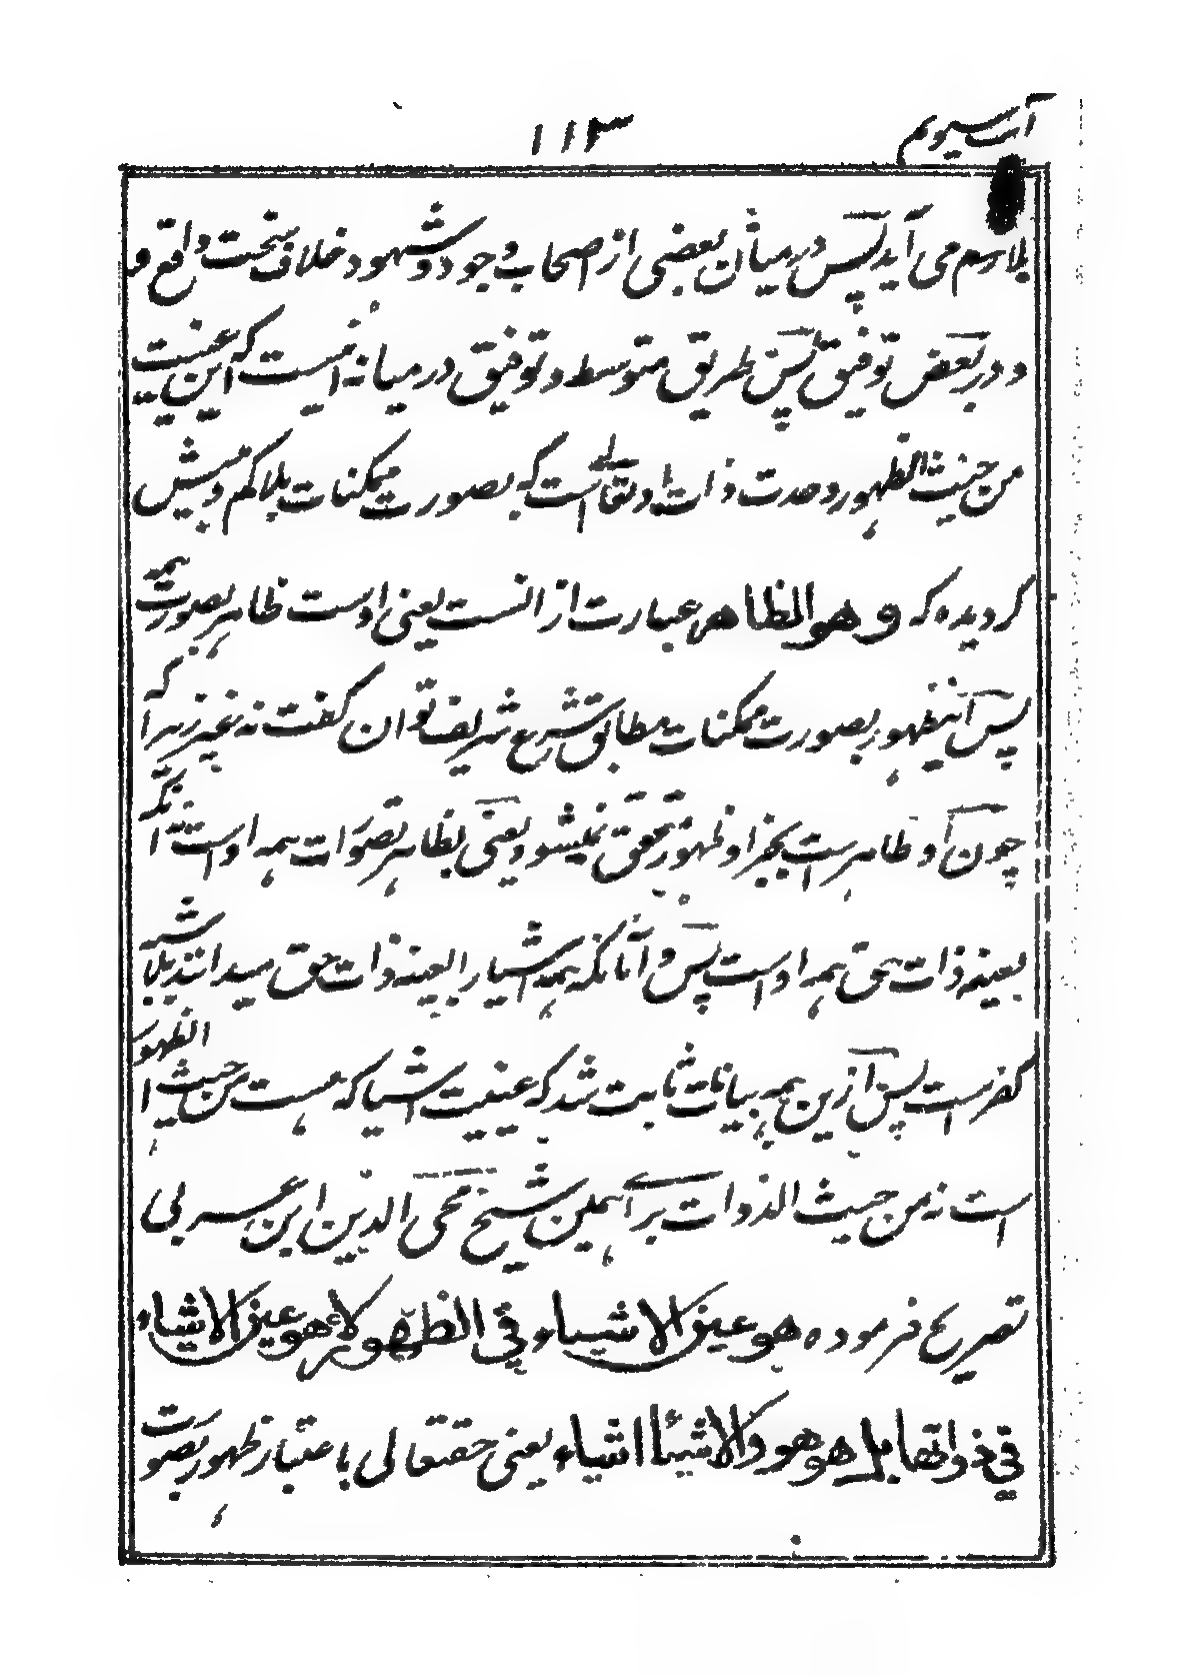 آب سیوم ۱۱۳
بلارسم می آید پس درمیان بعضی از اصحاب وجود و شهود خلاف سخت واقع و
و در بعض توفیق پس طریق متوسط و توفیق درمیانه اینست که این عینیت
من حیث الظهور وحدت ذات او تعالی است که بصورت ممکنات پلاکم و بیش
گردیده که و هو الظاهر عبارت از انست یعنی اوست ظاهر بصورت همه
پس اینظهور بصورت ممکنات مطابق شرع شریف توان گفت نه غیر زیرا که
چون او ظاهرست بجز او ظهور متحقق نمیشود یعنی بظاهر تصورات همه اوست نه آنکه
بعینه ذات حق همه اوست پس و آنانکه همه اشیا را بعینه ذات حق میدانند بلاشبه
کفرست پس ازین همه بیانات ثابت شد که عینیت اشیا که هست من حیث الظهور
است نه من حیث الذوات برای همین شیخ محی الدین ابن عربی
تصریح فرموده هو عین الاشیاء فی الظهور لا هو عین الاشیاء
فی ذواتها بل هو هو والاشیاء اشیاء یعنی حقتعالی باعتبار ظهور بصورت